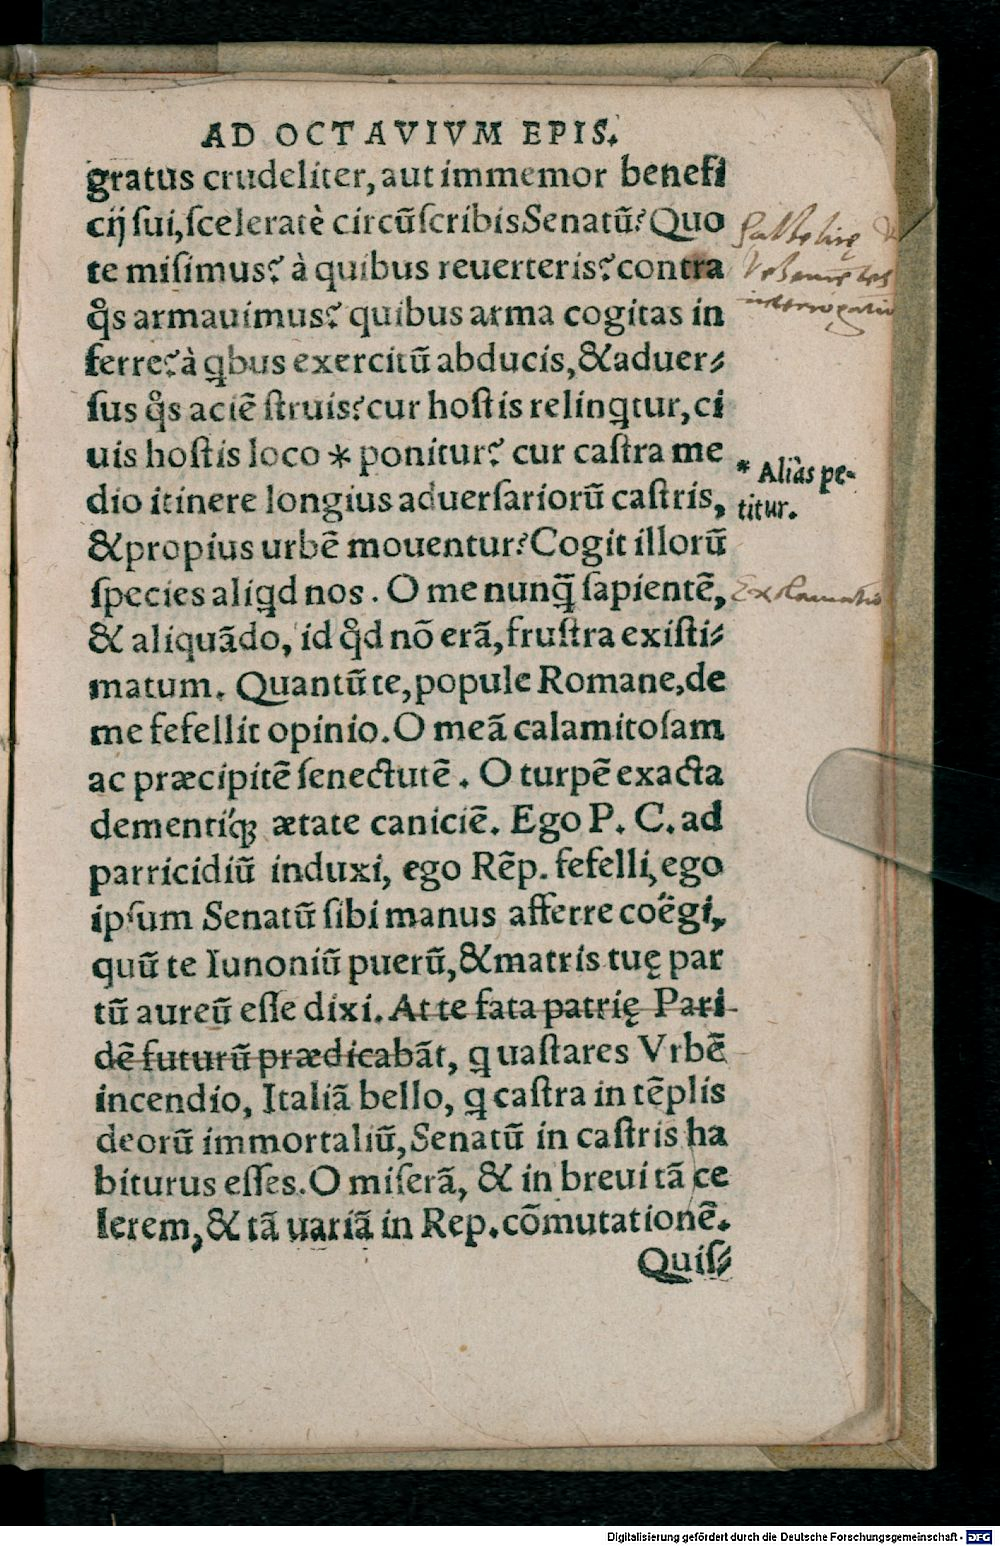 AD OCTAVIVM EPIS.
gratus crudeliter, aut immemor benefi
cij sui, sceleratè circũscribis Senatũ? Quo
te misimus? à quibus reuerteris? contra
q̊s armauimus? quibus arma cogitas in
ferre? à qbus exercitũ abducis, & aduer⸗
sus q̊s aciẽ struis? cur hostis relinqtur, ci
uis hostis loco * ponitur? cur castra me
* Aliàs pe-
titur.
dio itinere longius aduersariorũ castris,
& propius urbẽ mouentur? Cogit illorũ
species aliqd nos. O me nunq̃ sapientẽ,
Exclamatio
& aliquãdo, id q̊d nõ erã, frustra existi⸗
matum. Quantũ te, popule Romane, de
me fefellit opinio. O meã calamitosam
ac præcipitẽ senectutẽ. O turpẽ exacta
dementiq́; ætate caniciẽ. Ego P. C. ad
parricidiũ induxi, ego Rẽp. fefelli, ego
ipsum Senatũ sibi manus afferre coëgi,
quũ te Iunoniũ puerũ, & matris tuę par
tũ aureũ esse dixi. At te fata patrię Pari
dẽ futurũ prædicabãt, q uastares Vrbẽ
incendio, Italiã bello, q castra in tẽplis
deorũ immortaliũ, Senatũ in castris ha
biturus esses. O miserã, & in breui tã ce
lerem, & tã uariã in Rep. cõmutationẽ.
Quis⸗
Digitalisierung gefördert durch die Deutsche Forschungsgemeinschaft - DFG